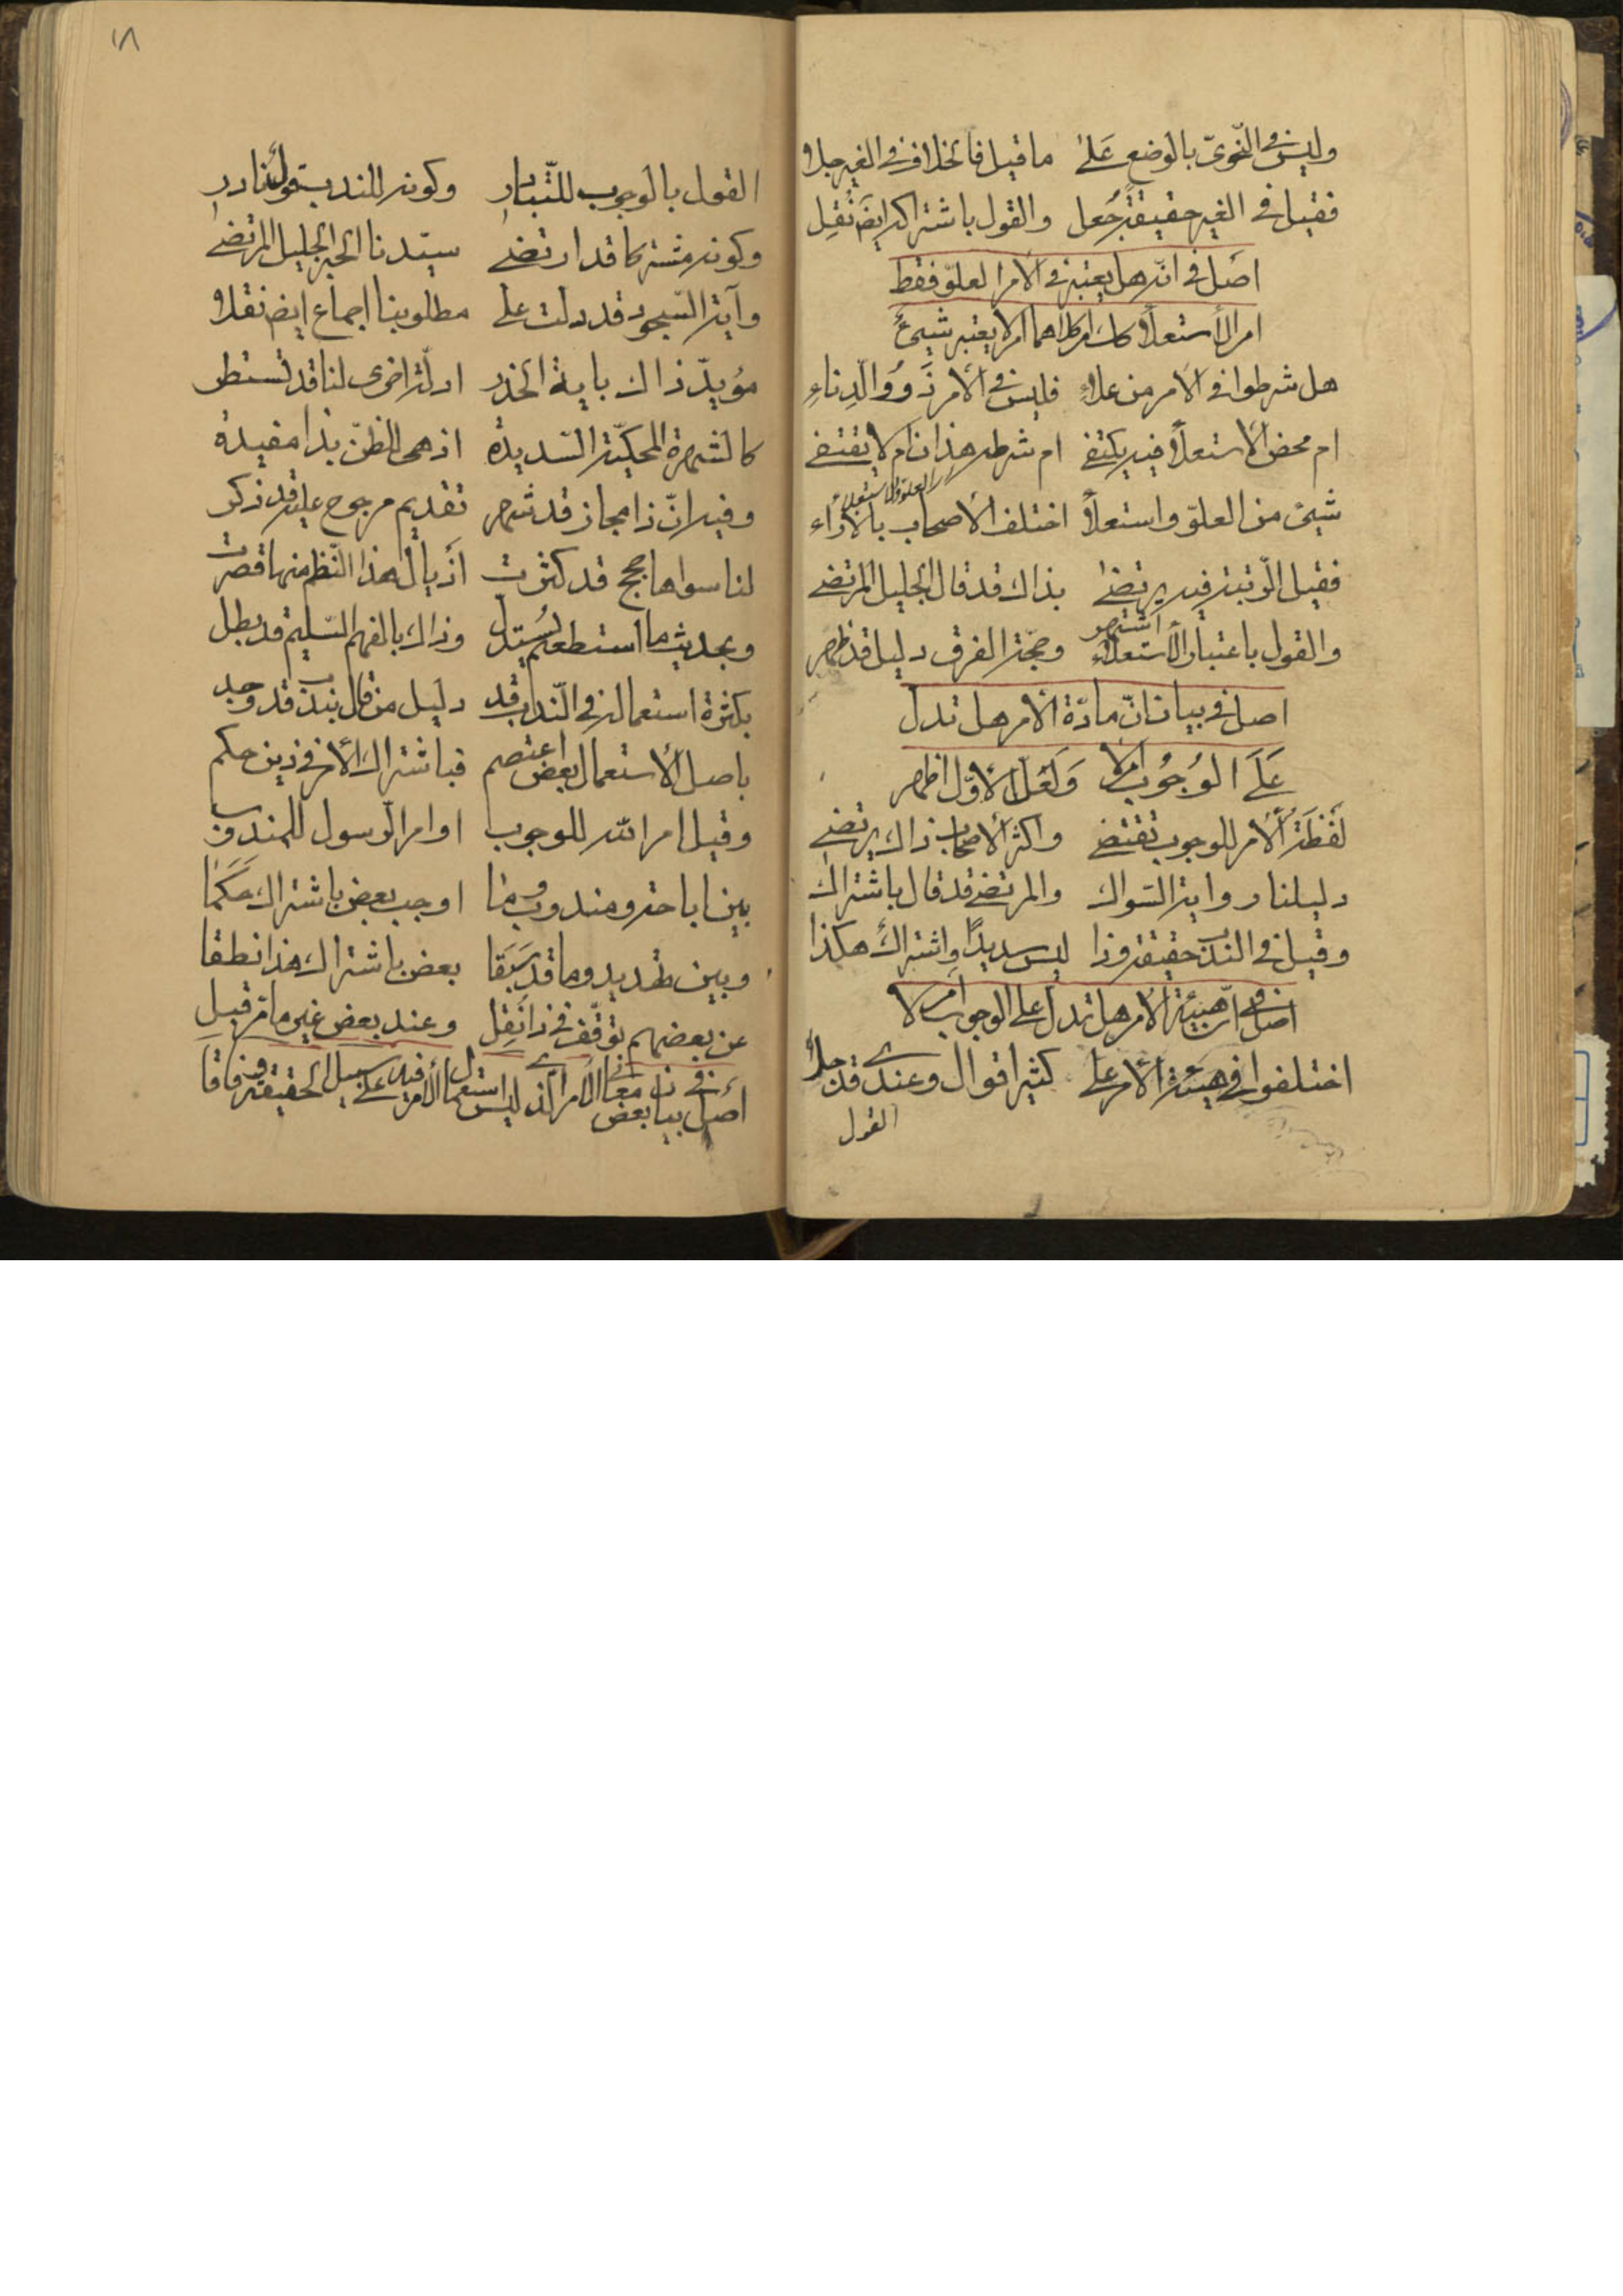 وليس في النّحويّ بالوضع على ما قيل فالخلاف في الغير جلا
فقيل في الغير حقيقة جعل والقول باشتراكه ايض نُقِل
اصل في انّه هل يعتبر في الأمر العلوّ فقط
ام الأستعلاء كك ام كلاهما ام لا يعتبر شيئ
هل شرطوا في الأمر من علاء فليس في الأمر ذوو الدِناءِ
ام محض الاستعلاء فيه يكتفى ام شرطه هذان ام لا يقتضى
شيئ من العلوّ واستعلاء اختلف الأصحاب بالآراء
العلوّ والاستعلاء
فقيل الرّتبة فيه يرتضى بذاك قد قال الجليل المرتضى
والقول باعتبار الأستعلاء اشتهر وحجّة الفرق دليل قد ظهر
اصل في بيان انّ مادّة الأمر هل تدل
على الوُجُوب ام لا وَلَعَل الأوّل اظهر
لَفظَة الأمر للوجوب تقتضى واكثر الأصحاب ذاك يرتضى
دليلنا رواية السّواك والمرتضى قد قال باشتراك
وقيل في الندب حقيقة وذا ليس سديدًا واشتراك هكذا
اصل في انّ هيئة الأمر هل تدل على الوجوب ام لا
اختلفوا في هيئة الأمر على كثير اقوال وعندى قد جلا
القول
١٨
القول بالوجوب للتّبادر وكونه للندب قول نادر
وكونه مشتركا قد ارتضى سيّدنا الحبر الجليل المرتضى
وآية السّجود قد دلت على مطلوبنا اجماع ايض نقلا
مؤيّد ذاك باية الحذر ادلّة اخرى لنا قد تستطر
كالشهرة المحكيّة السّديدة اذ هى للظنّ بذا مفيدة
وفيه انّ ذا مجاز قد شهر تقديم مرجوح عليه قد ذكر
لنا سواها حجج قد كثرت أذيال هذا النّظم منها قصرت
وبحديث ما استطعتم يُستدل وذاك بالفهم السّليم قد بطل
بكثرة استعماله في النّدب قد دليل من قال بندب قد وجد
باصل الأستعمال بعض اعتصم فباشتراك الأمر في ذين حكم
وقيل امر الله للوجوب اوامر الرّسول للمندوب
بين اباحة ومندوب وما اوجب بعض باشتراك حَكَمَا
وبين تهديد وما قد سَبَقا بعض باشتراك هذا نطقا
عن بعضهم توقّف في ذا نُقِل وعند بعض غير ما مرّ قبل
اصل في بيان بعض معانى الأمر الذى ليس استعمال الأمر فيه على سبيل الحقيقة وفاقا